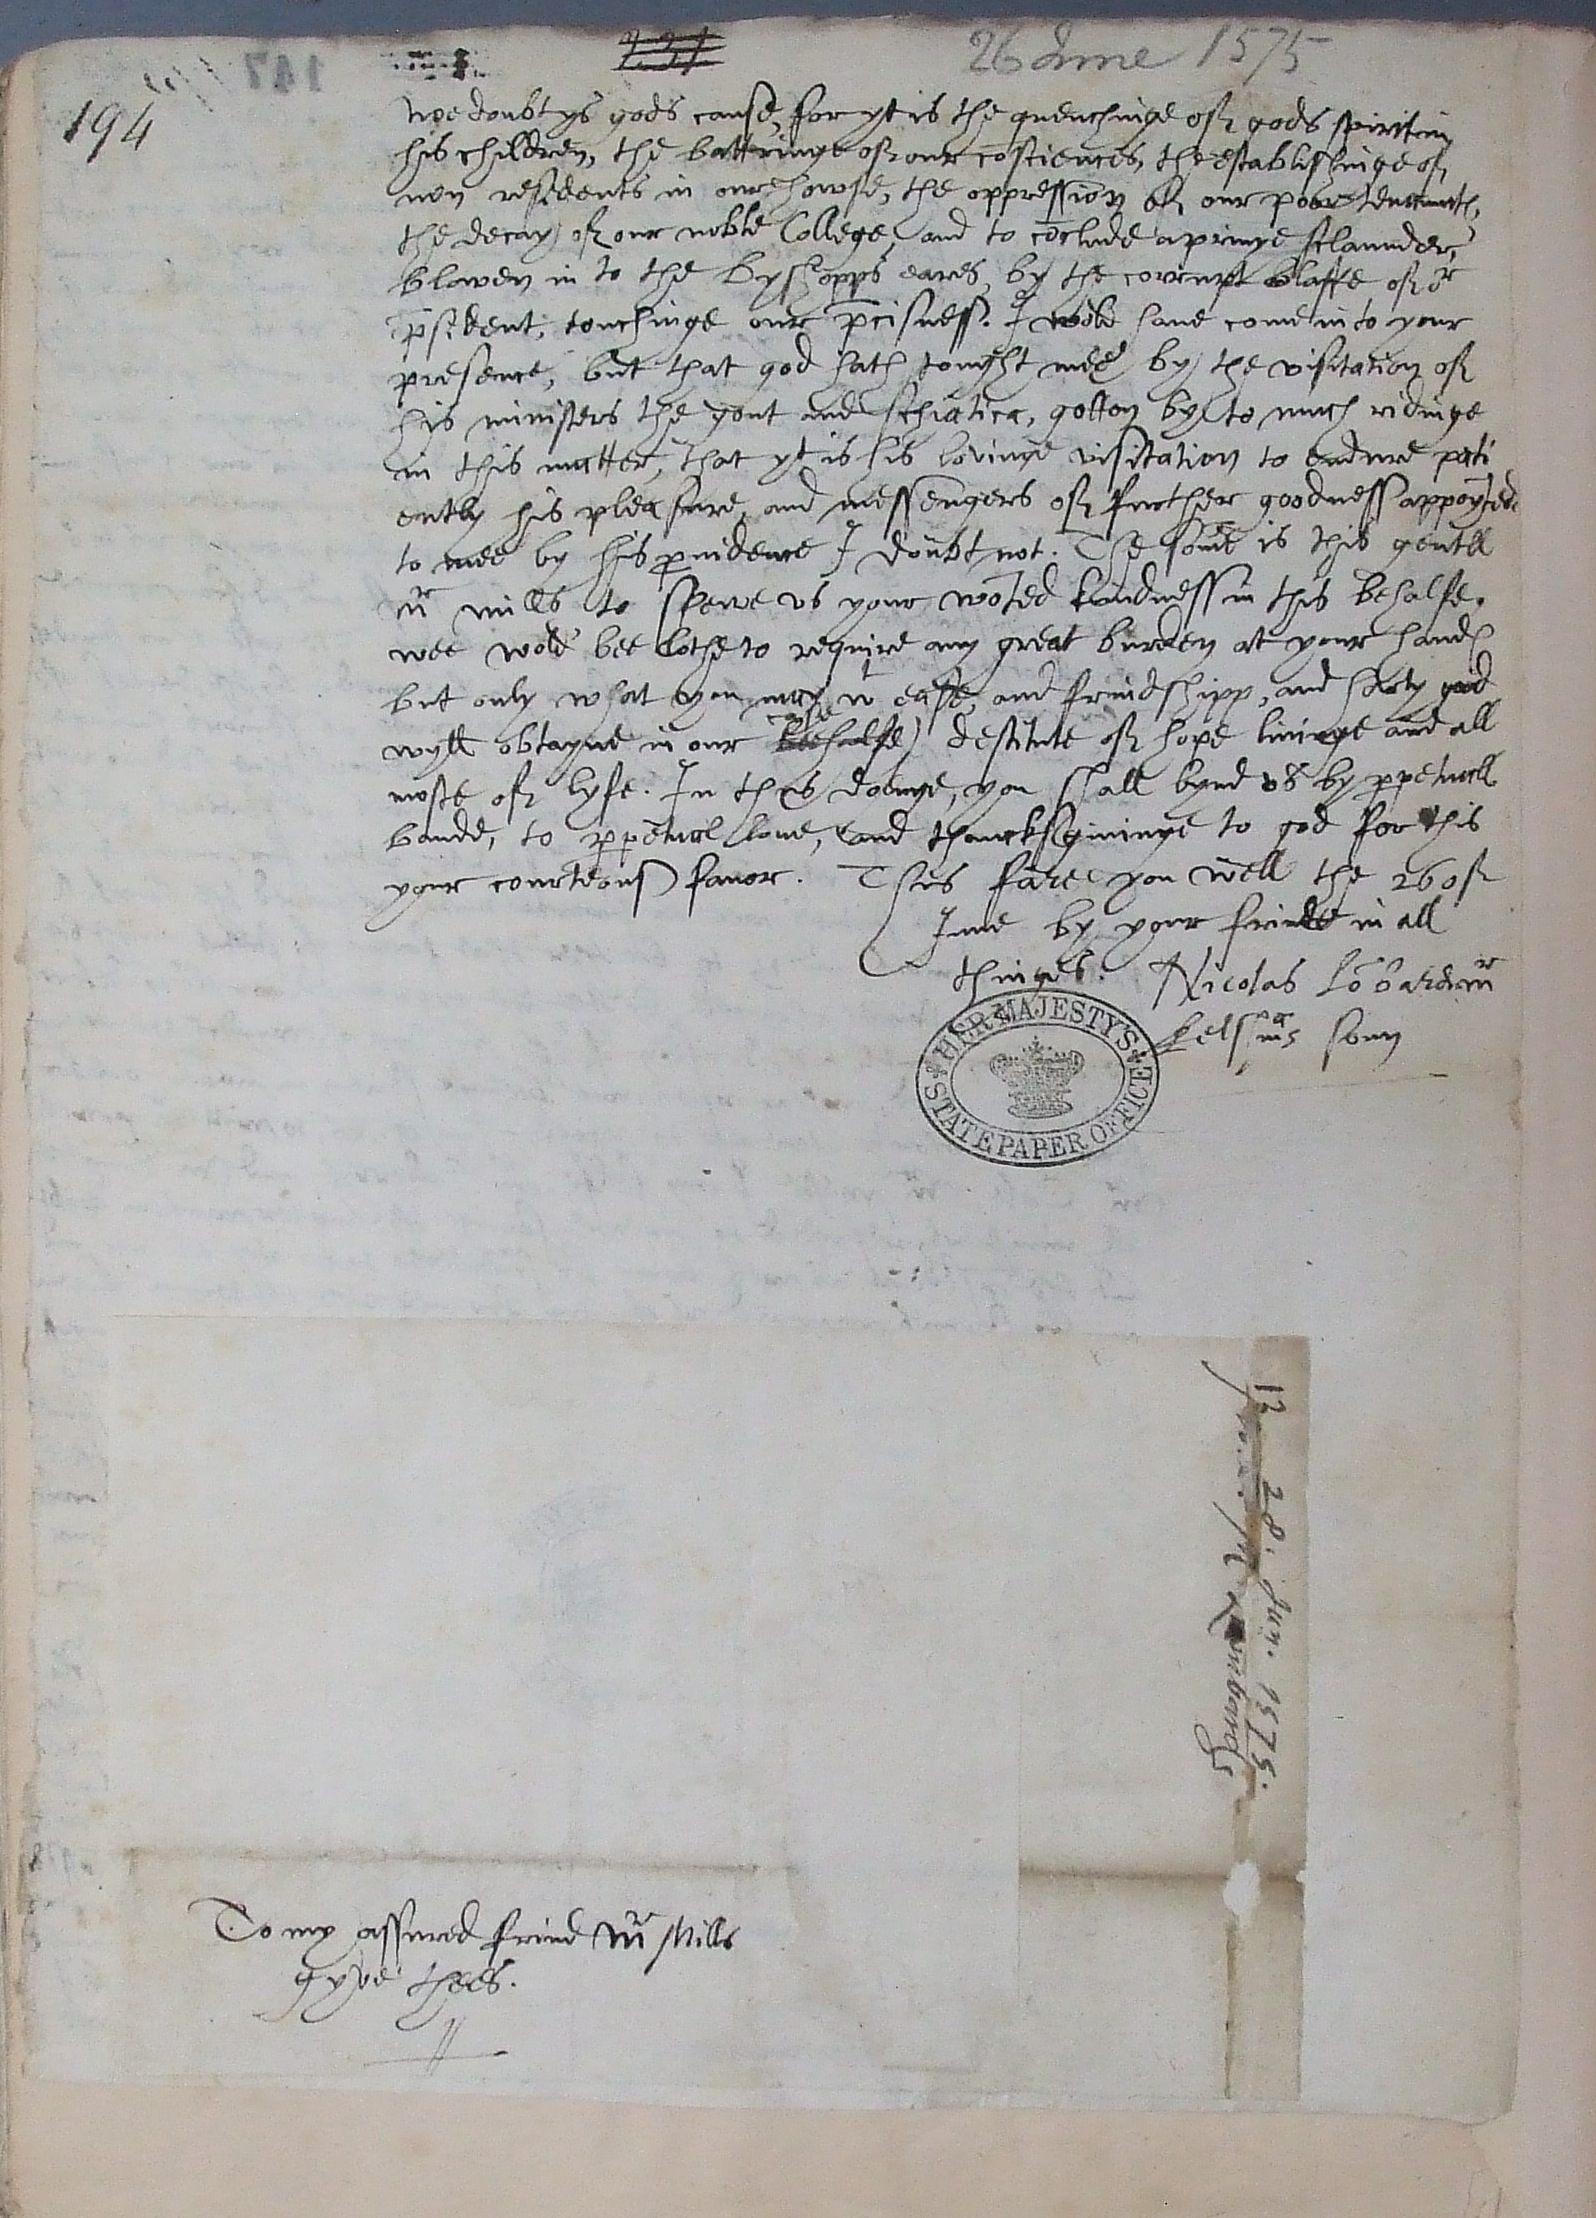 26 June 1575
194
147
wee doubt ys gods cause, for yt is the quenchinge of gods spirit in
his children, the battringe of our cōsciences, the establishinge of
non residents in our howse, the oppression of our poor tennants,
the decay of our noble College, and to cōclude a privye sclaunder,
blowen in to the Byshopps eares, by the corrupt blaste of or
p̄sident, touchinge our p̄cisness. I wold have come in to your
presence, but that god hath tought mee by the visitation of
his ministers the gout and schiatica, gotton by to much ridinge
in this matter, that yt is his lovinge visitation to endure pati
ently his pleasure, and messengers of further goodness appoynted
to mee by his pvidence I doubt not. The some is this gentll
mr mills to shewe us your woted kindness in this behalfe.
wee wold bee lothe to require any great burden at your hands
but only what you may wt ease, and frindshipp, and harty good
wyll obtayne in our behalfe case destitute of hope livinge and all
moste of lyfe. In this doinge, you shall bynd us by ppetuall
bande, to ppetual love, and thancksgivinge to god for this
your courteous favor. Thus fare you well the 26 of
June by your frinde in all
thinges. Nicolas Lōbard mr
Kelshms sonn
HER MAJESTY'S
STATE PAPER OFFICE
28. Jun. 1575.
Lumbard
To my assured frind mr Mills
gyve thes.